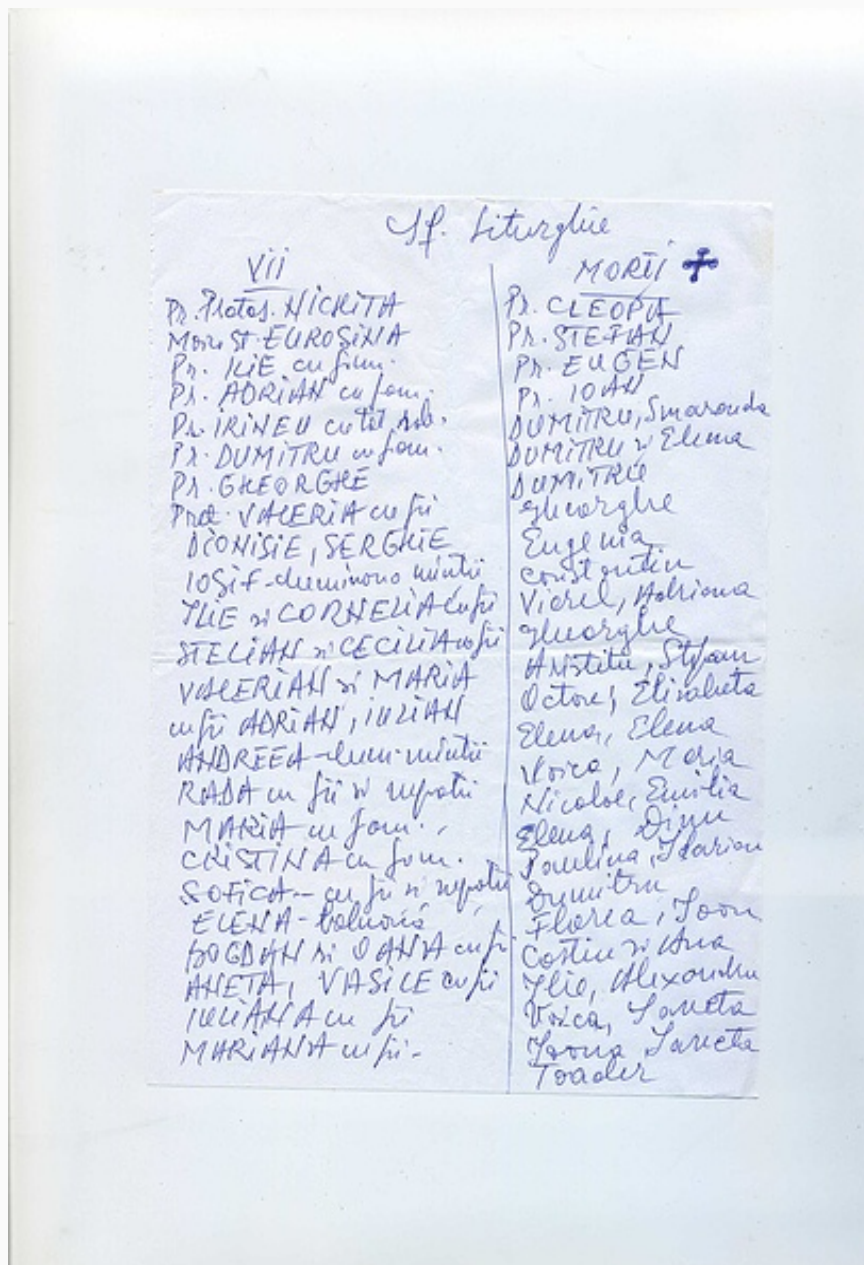 Sf. Liturghie
VII
Pr. Protos. NICHITA
Mon. St. EUROSINA
Pr. ILIE cu fam.
Pr. ADRIAN cu fam.
Pr. IRINEU cu tot sob.
Pr. DUMITRU cu fam.
Pr. GHEORGHE
VALERIA cu fii
DIONISIE, SERGHIE
IOSIF - lumin minții
ILIE si CORNELIA cu fii
STELIAN si CECILIA cu fii
VALERIAN si MARIA
cu fii ADRIAN, IULIAN
ANDREEA - lum. minții
RADA cu fii si nepoții
MARIA cu fam.
CRISTINA cu fam.
SOFICA - cu fii si nepoții
ELENA - bolnavă
BOGDAN si OANA cu fii
ANETA, VASILE cu fii
IULIANA cu fii
MARIANA cu fii -
MORȚI
Pr. CLEOPA
Pr. STEFAN
Pr. EUGEN
Pr. IOAN
DUMITRU, Smaranda
DUMITRU si Elena
DUMITRU
Gheorghe
Eugenia
Constantin
Viorel, Adriana
Gheorghe
Aristitu, Stefan
Elisabeta
Elena, Elena
Voica, Maria
Nicolae, Emilia
Elena, Dinu
Paulina, Ilarion
Dumitru
Florea, Ioan
Costin si Ana
Ilie, Alexandru
Voica, Sancta
Ioana, Sancta
Toader